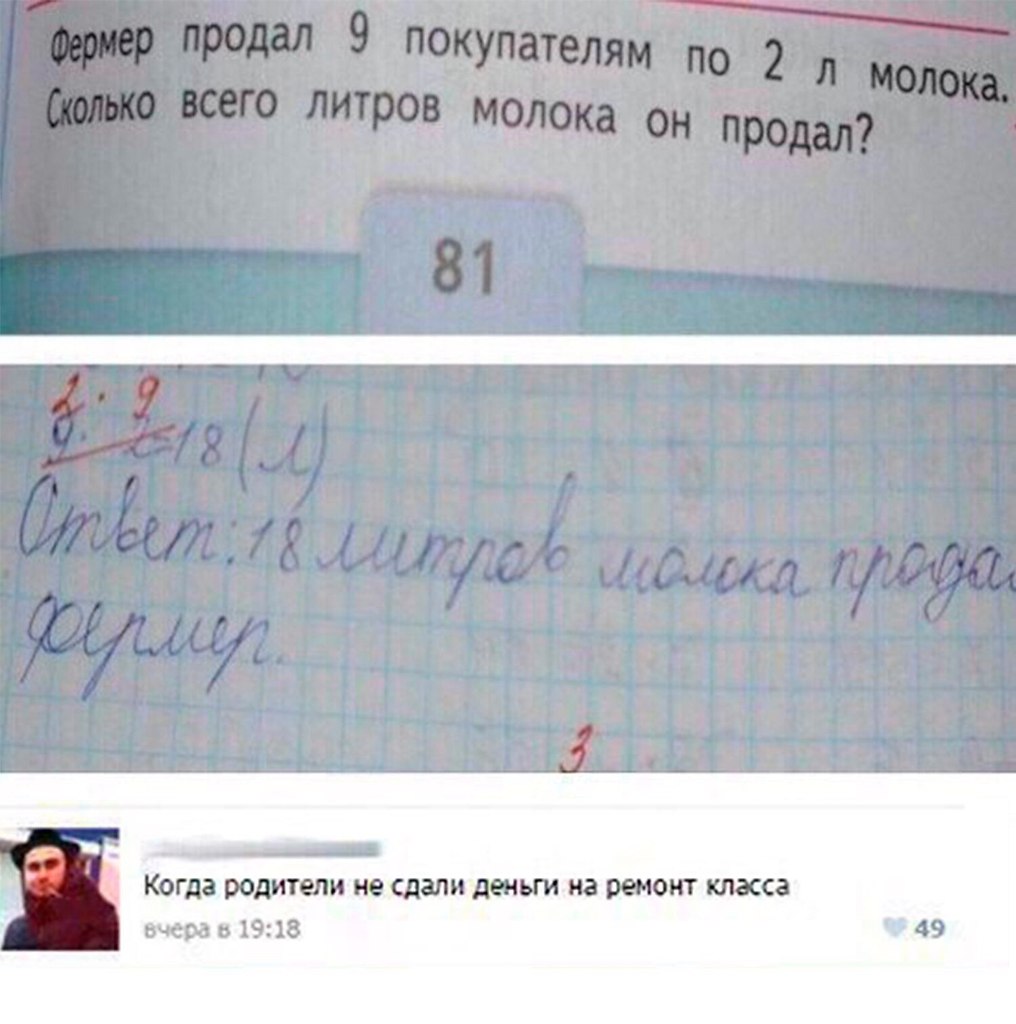 Фермер продал 9 покупателям по 2 л молока.
Сколько всего литров молока он продал?
81
2 · 9
9 · 2=18 (л)
Ответ: 18 литров молока продал
фермер.
3
Когда родители не сдали деньги на ремонт класса
вчера в 19:18
49